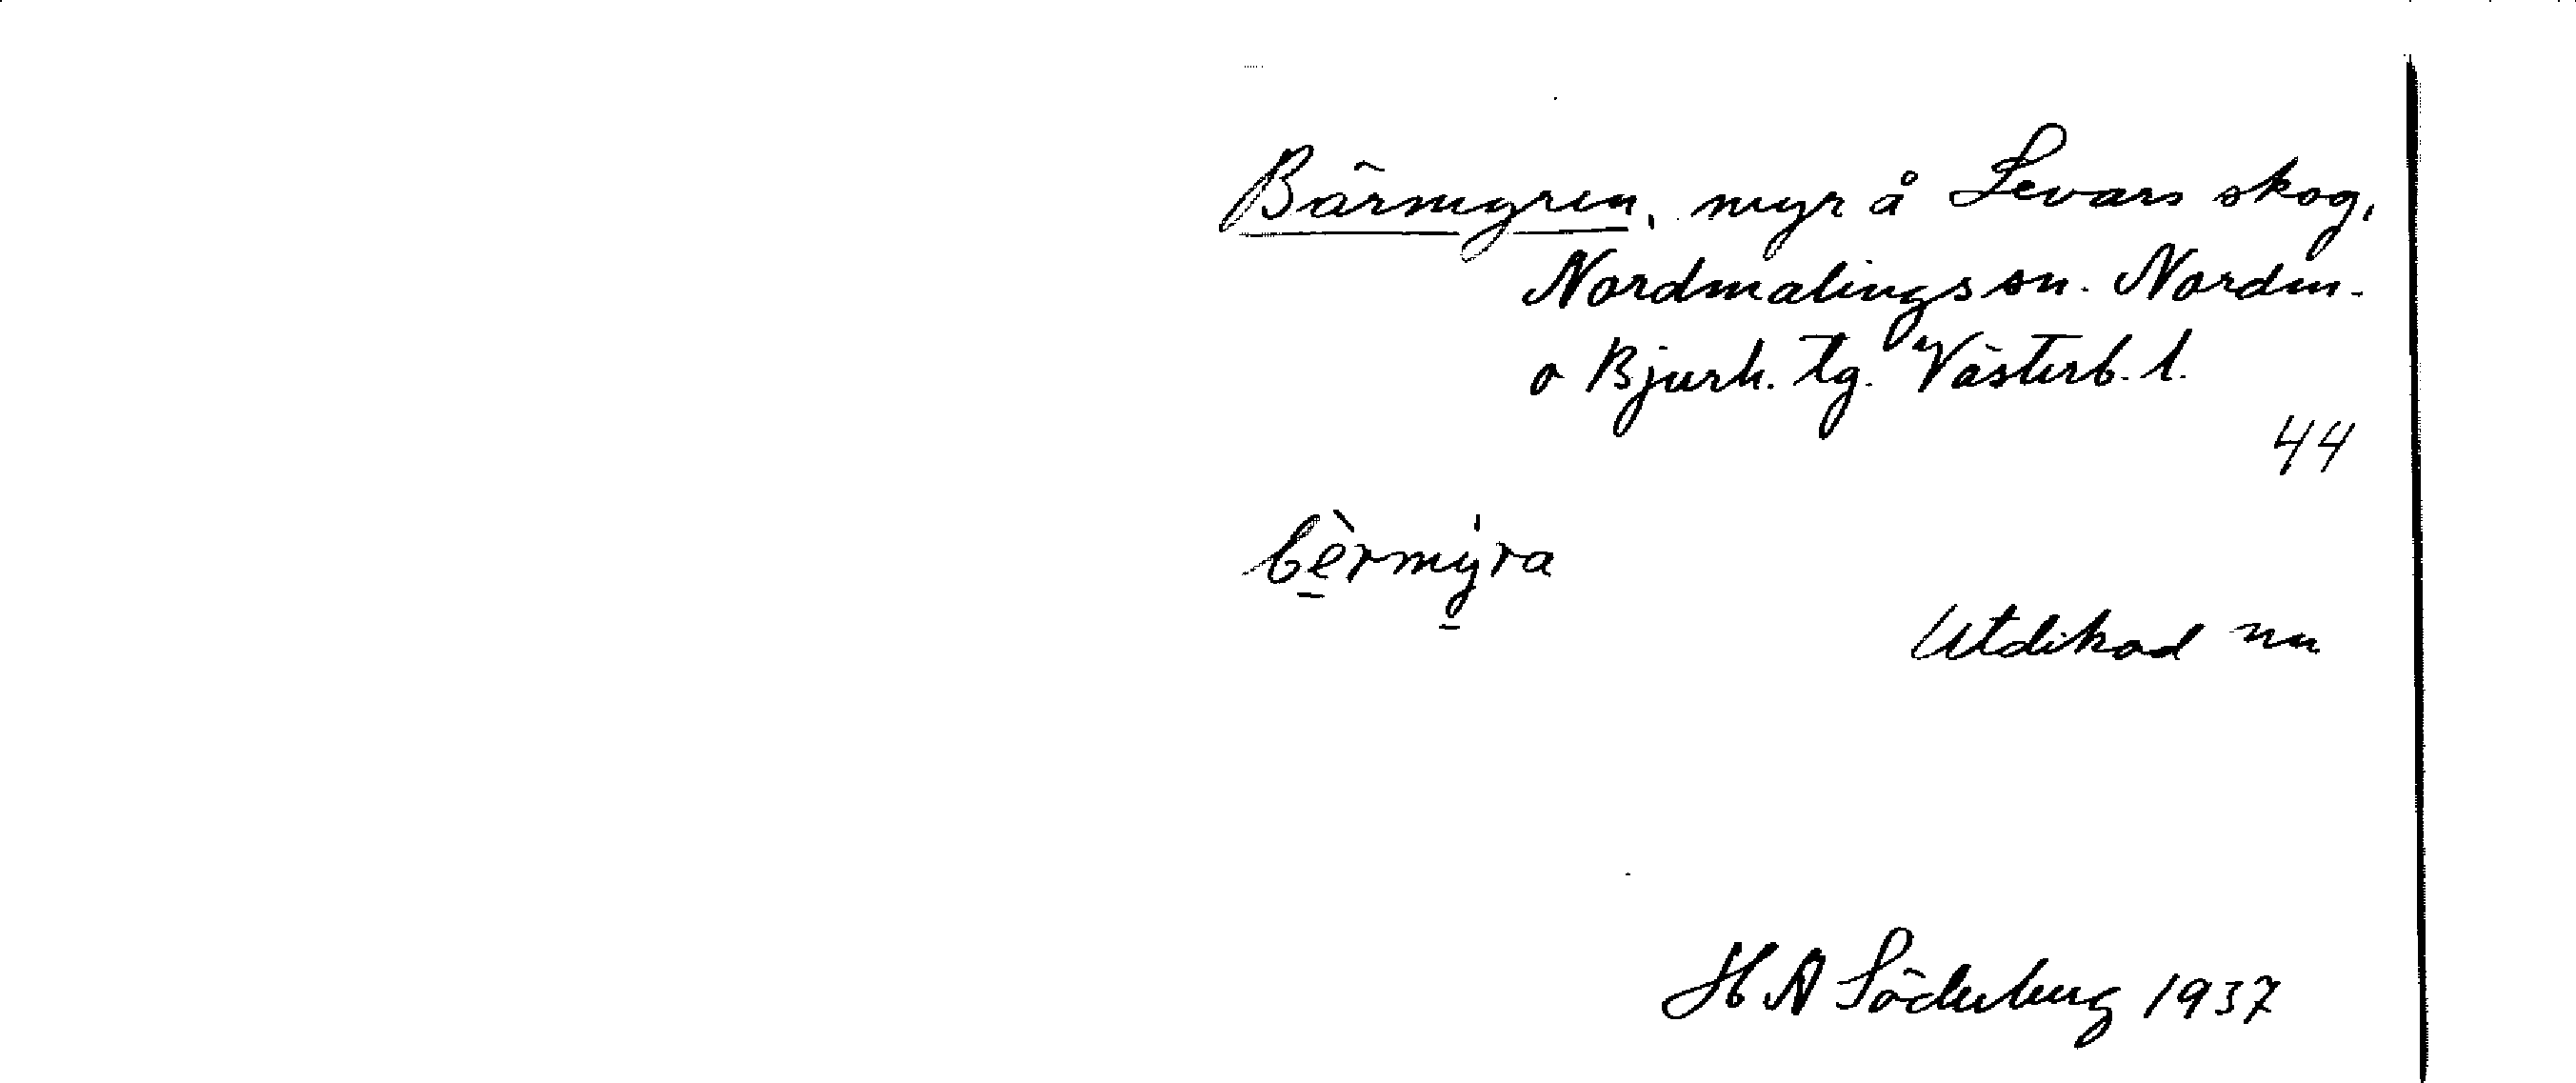 Bärmyren, myr å Levars skog,
Nordmalings sn. Nordm.
o Bjurh. tg. Västerb. l.
44
bèrmýra
Utdikad nu
H A Söderberg 1937